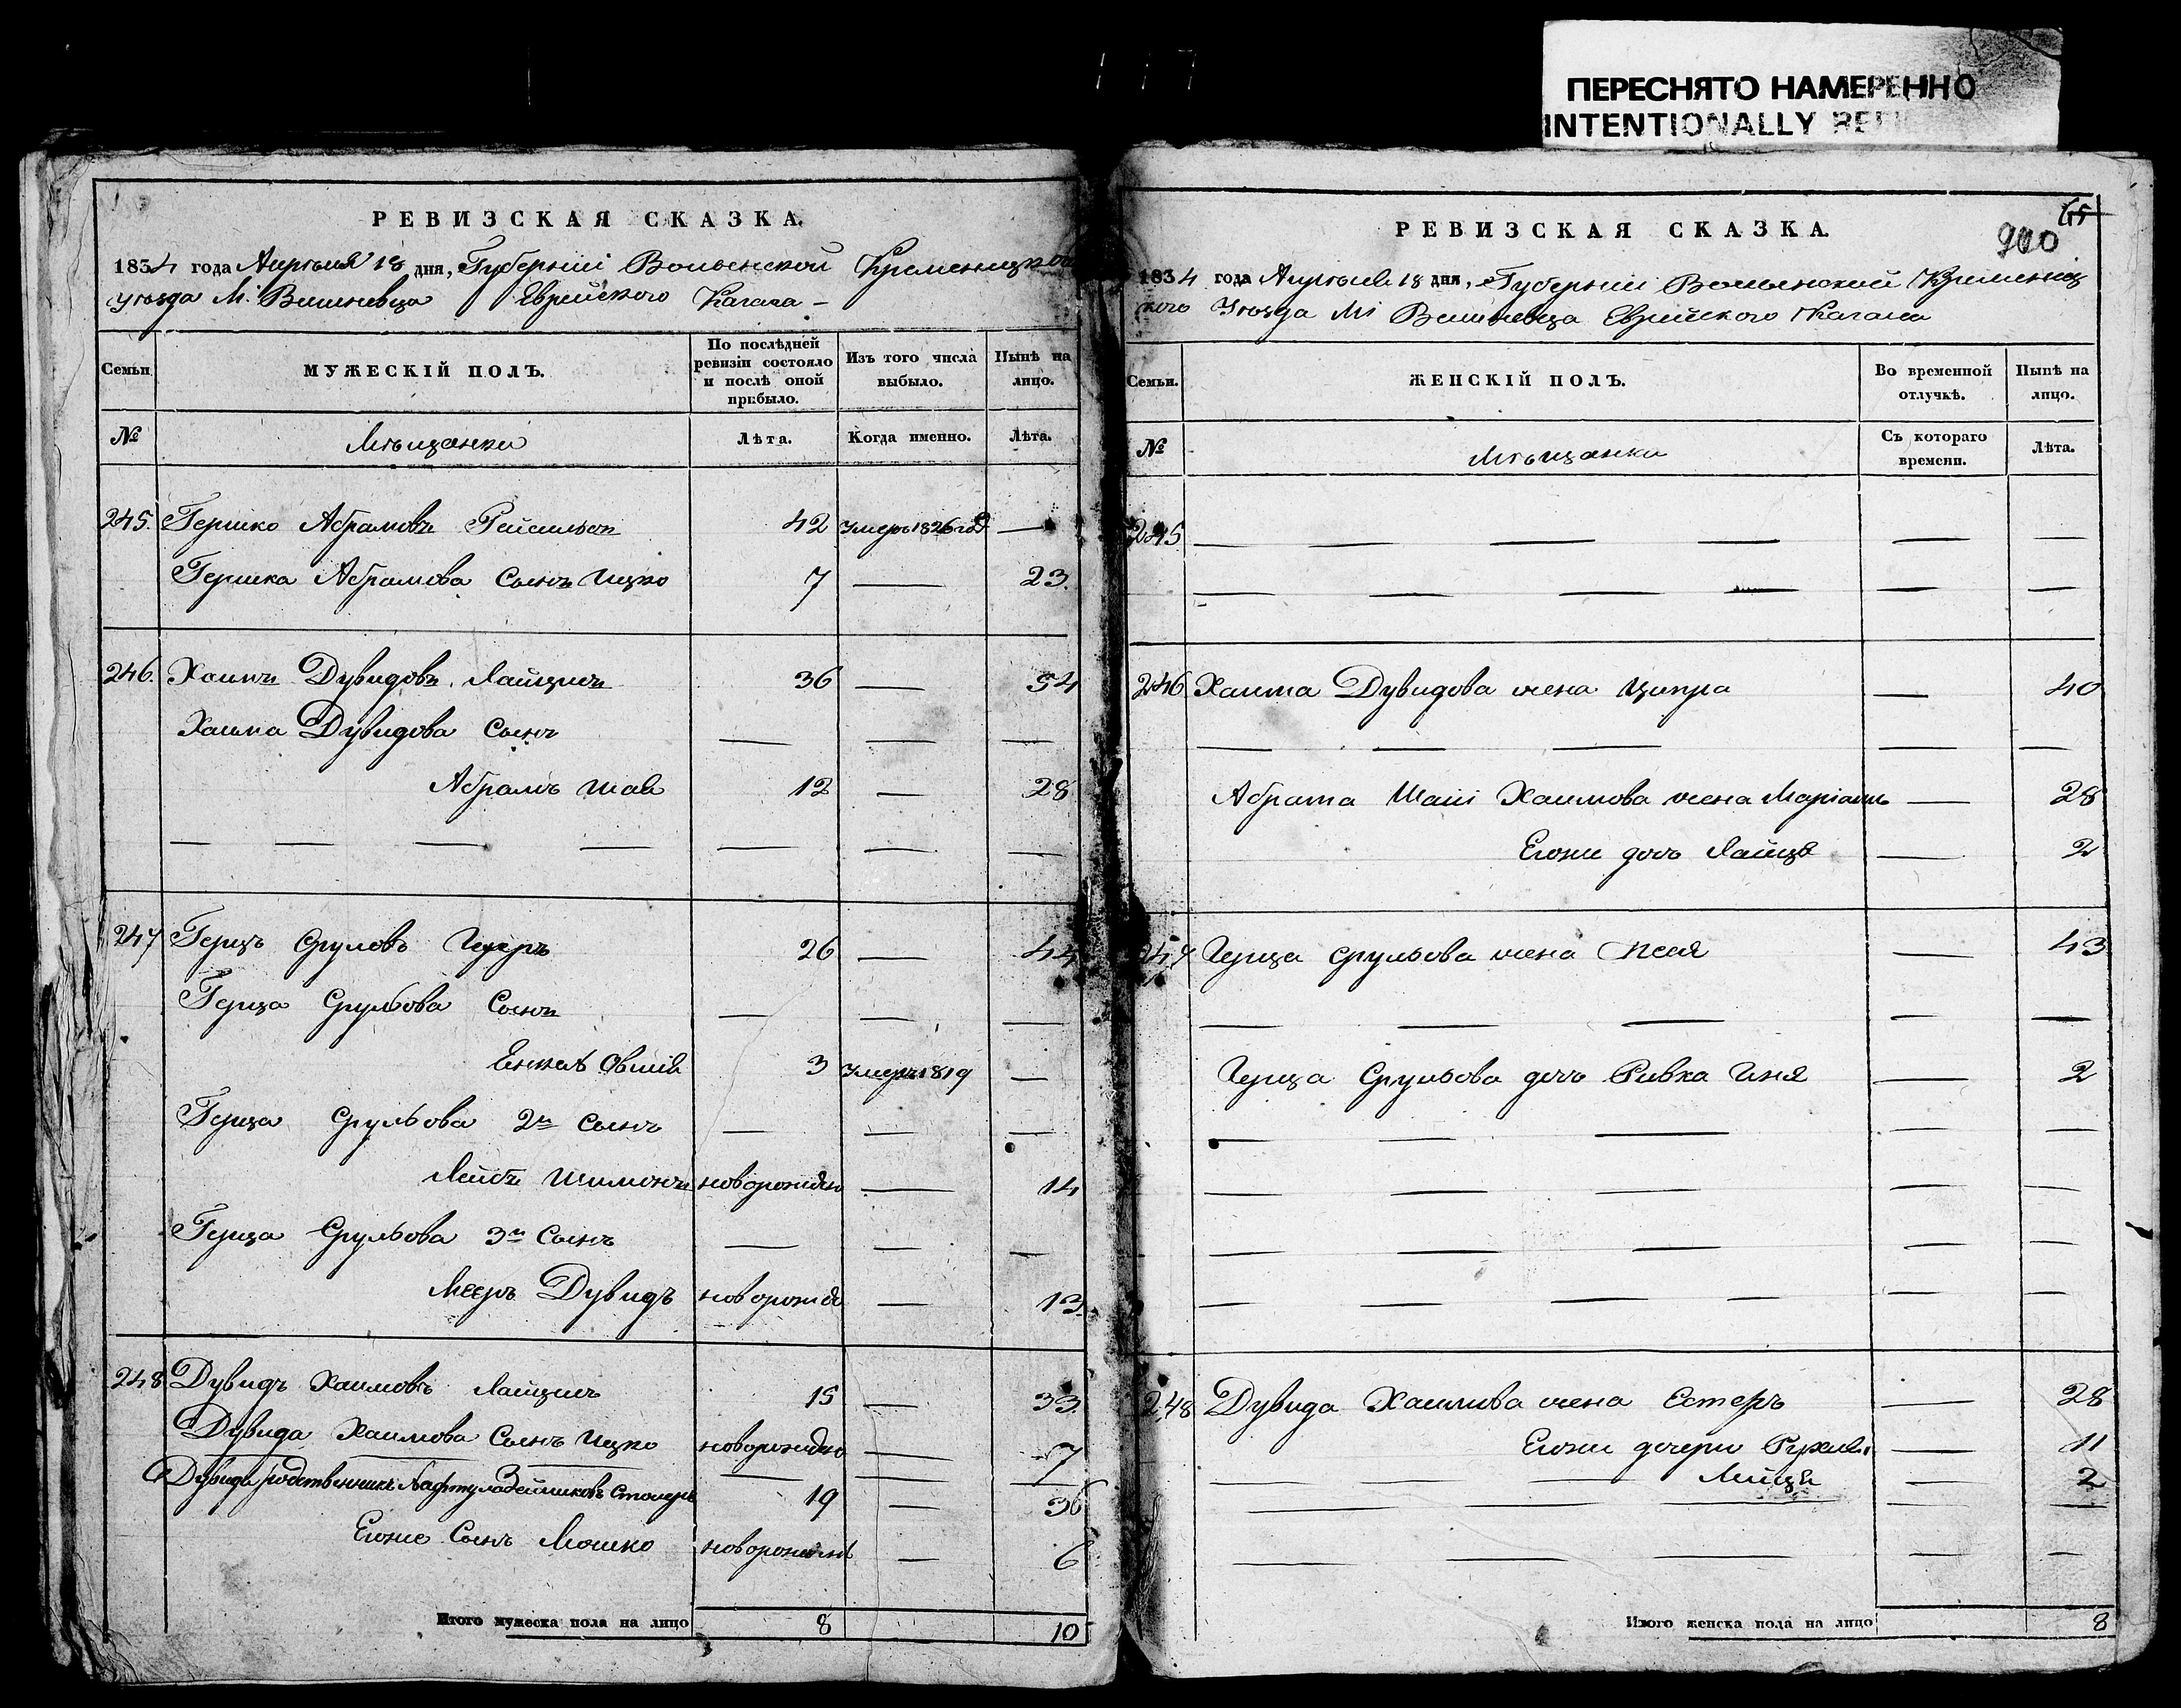 ПЕРЕСНЯТО НАМЕРЕННО
INTENTIONALLY
РЕВИЗСКАЯ СКАЗКА.
1834 года Апреля 18 дня, Губерніи Волынской Кременецкаго
уезда М: Вишневца Еврейского Кагала –
Семьи
МУЖЕСКІЙ ПОЛЪ.
По послѣдней ревизіи состояло и послѣ оной прибыло.
Изъ того числа выбыло.
Нынѣ на лицо.
№
Мѣщанки
Лѣта.
Когда именно.
Лѣта.
245. Гершко Абрамовъ 42 Умеръ 1826 год —
Гершка Абрамова Сынъ Ицко 7 — 23.
246. Хаимъ Дувидовъ Лайцинъ 36 — 54
Хаима Дувидова Сынъ — — —
Абрамъ Шая 12 — 28
— — — — — — —
247 Герцъ Срулевъ 26 — 44
Герца Срульова Сынъ — — —
Енкель Овший 3 Умеръ 1819 —
Герца Срульова 2й Сынъ — — —
Лейбъ Шимонъ новорожден — 14
Герца Срульова 3й Сынъ — — —
Мееръ Дувидъ новорожде — 13.
248 Дувидъ Хаимовъ Лайцинъ 15 — 33.
Дувида Хаимова Сынъ Ицко новорожден — 7
Дувида родственникъ Нафтула Столеръ 19 — 36
Егоже Сынъ Мошко новорожден — 6
Итого мужеска пола на лицо 8 10
65
900
РЕВИЗСКАЯ СКАЗКА.
1834 года Апреля 18 дня, Губерніи Волынской Кременец
кого Уезда Мі Вишневца Еврейского Кагала
Семьи.
ЖЕНСКІЙ ПОЛЪ.
Во временной отлучкѣ.
Нынѣ на лицо.
№
Мѣщанки
Съ котораго времени.
Лѣта.
245 — — — — — —
— — — — — —
246 Хаима Дувидова жена Ципра — 40
— — — — —
Абрама Шаіи Хаимова жена Маріамъ — 28
Егоже дочь Лайца — 2
247 Герца Срульова жена Песя — 43
— — — — —
Герца Срульова дочь Ривка Гиня — 2
— — — — —
— — — — —
— — — — —
— — — — — —
248 Дувида Хаимова жена Естеръ — 28
Егоже дочери Рухля — 11
— — — Лайця — 2
— — — — —
— — — — —
Итого женска пола на лицо 8